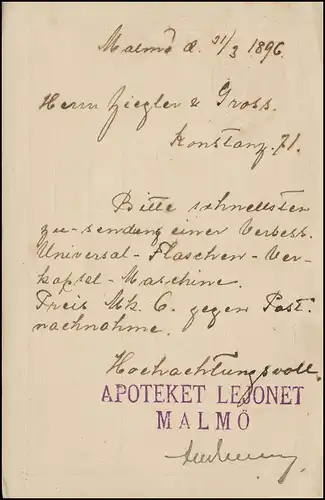 Malmö d. 21/3 1896.
Herrn Ziegler & Gross.
Konstanz. 71.
Bitte schnellsten
zu-sendung einer Verbess.
Universal-Flaschen-Ver-
kapsel-Maschine.
Preis Mk. 6. gegen Post.
nachnahme.
Hochachtungsvoll.
APOTEKET LEJONET
MALMÖ